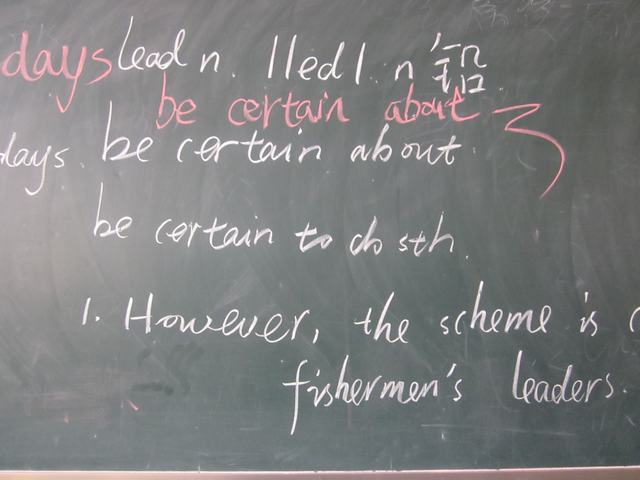 days lead n. /led/ n 铅
be certain about
days. be certain about
be certain to do sth.
1. However, the scheme is
fishermen's leaders.